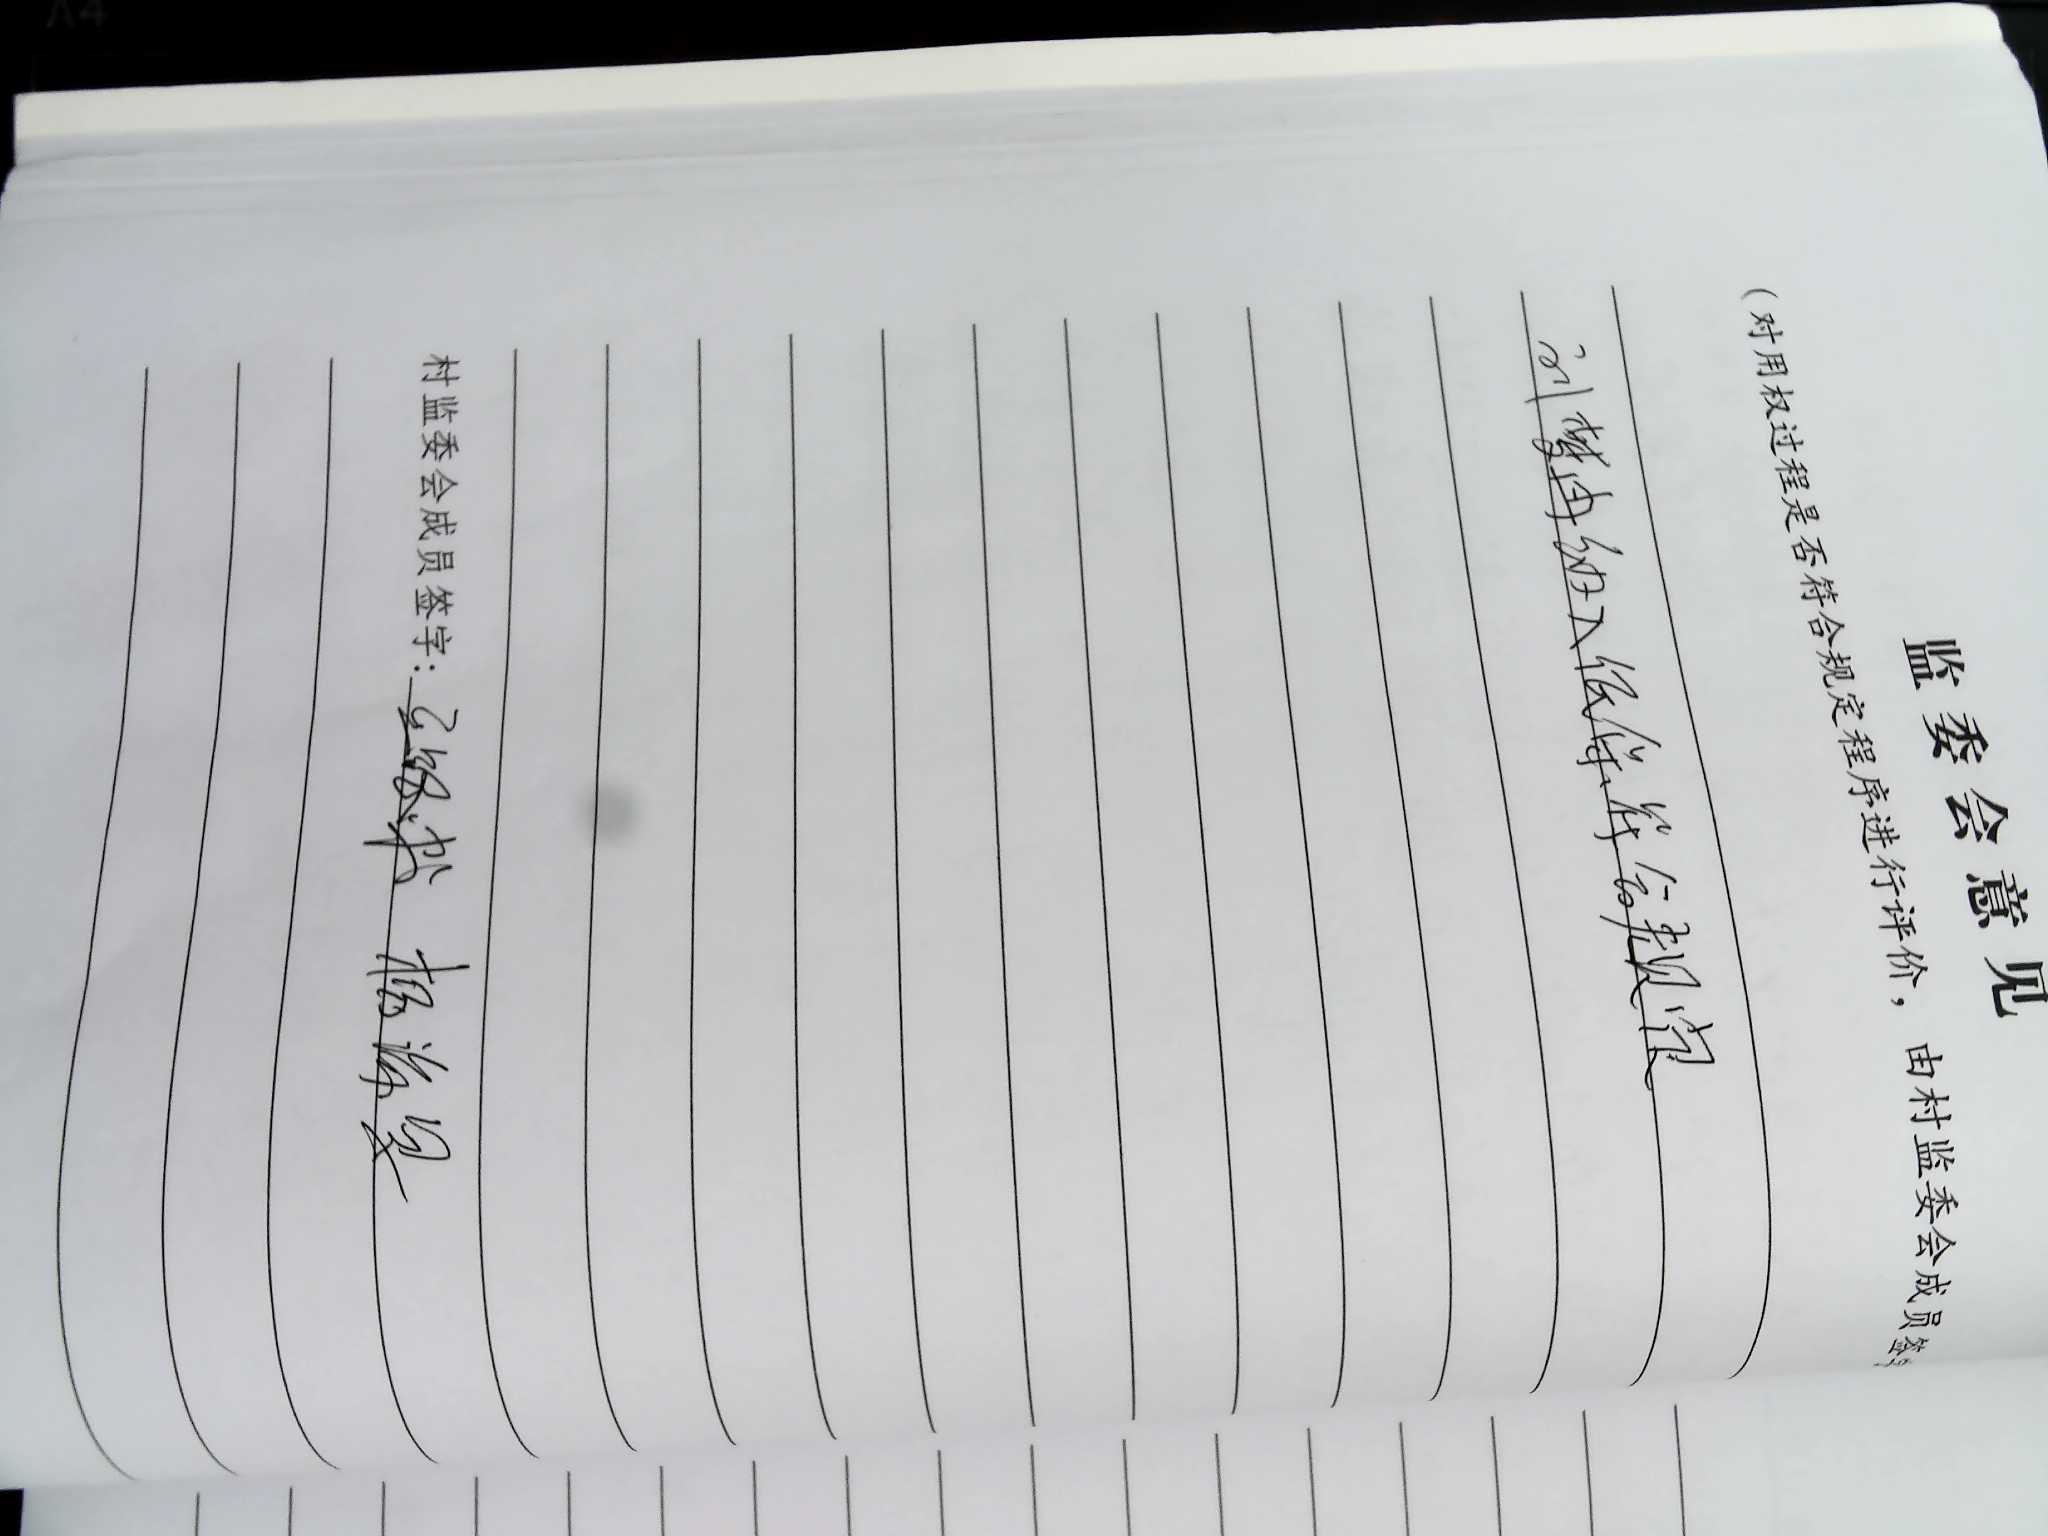 监委会意见
(对用权过程是否符合规定程序进行评价，由村监委会成员签字
刘 纳入低保符合规定
村监委会成员签字：
A4